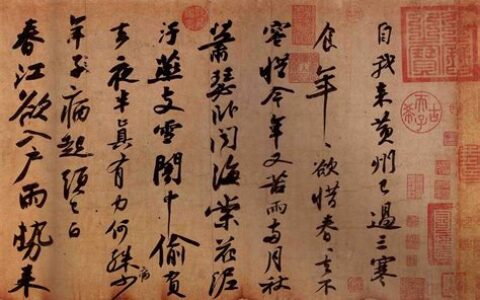 自我來黃州已過三寒
食年〻欲惜春〻去不
容惜今年又苦雨兩月秋
蕭瑟臥聞海棠花泥
汙燕支雪闇中偷負
去夜半真有力何殊少
病
年子病起須已白
春江欲入戶雨勢來